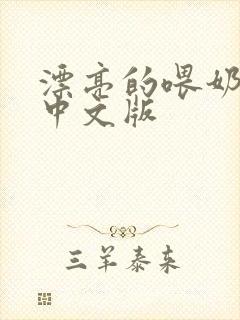 漂亮的喂奶
中文版
三羊泰来